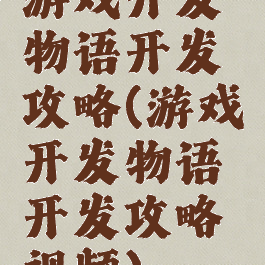 游戏开发
物语开发
攻略(游戏
开发物语
开发攻略
视频)